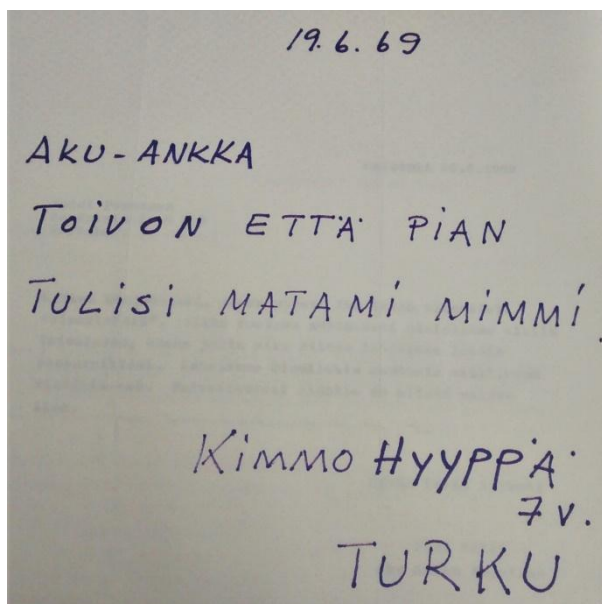 19.6.69
AKU-ANKKA
TOiVON ETTÄ PiAN
TULiSi MATAMi MiMMi.
KiMMO HYYPPÄ
7 v.
TURKU